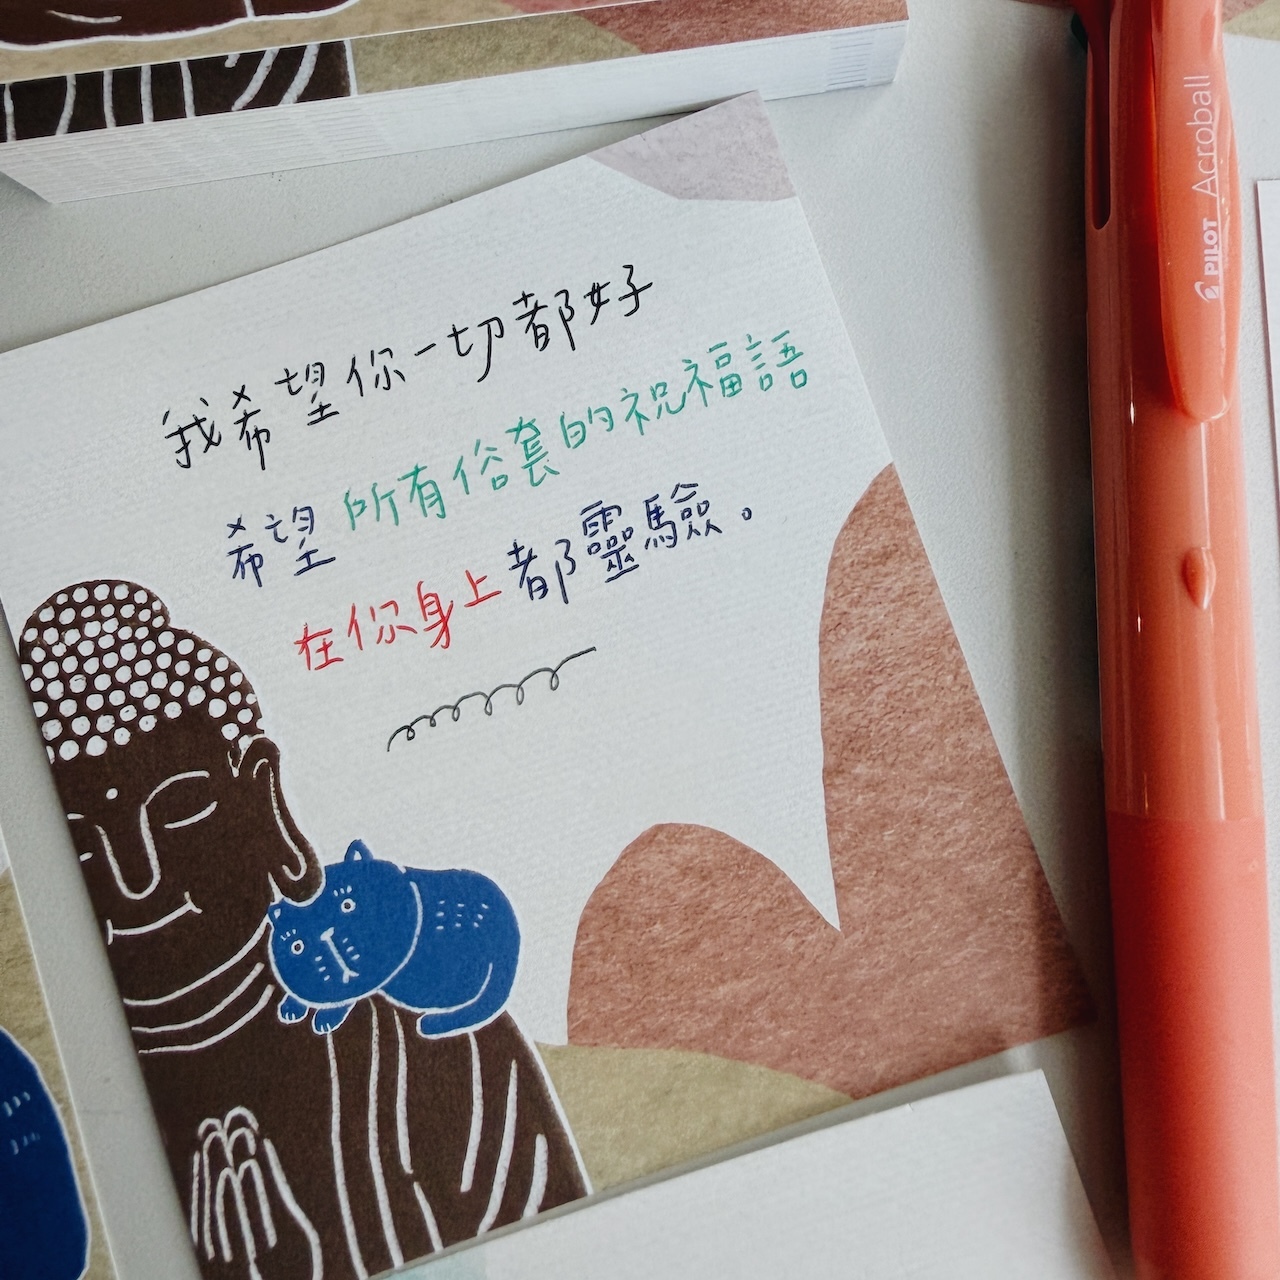 我希望你一切都好
希望所有俗套的祝福語
在你身上都靈驗。
PILOT Acroball